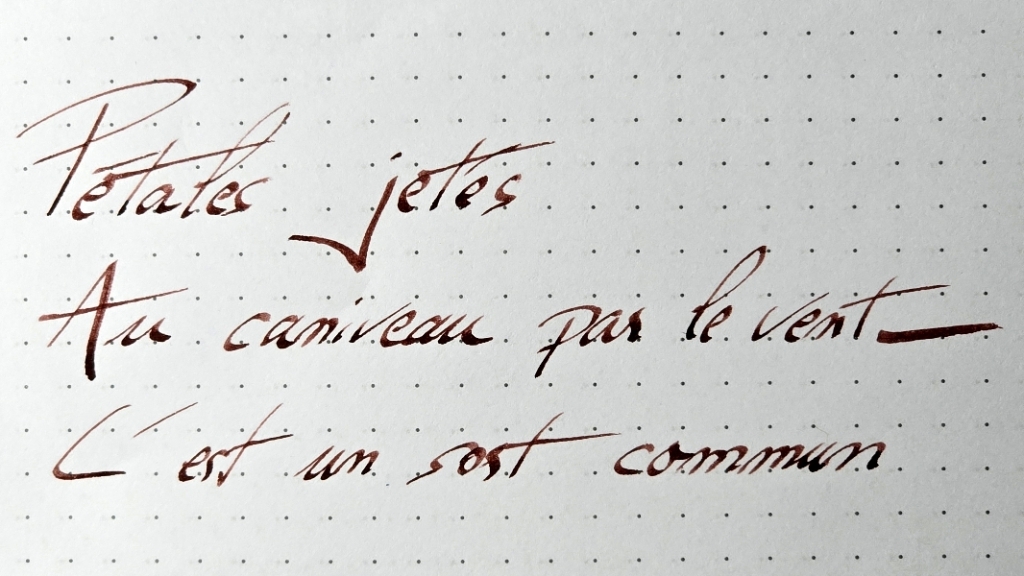 Pétales jetés
Au caniveau par le vent —
C'est un sort commun